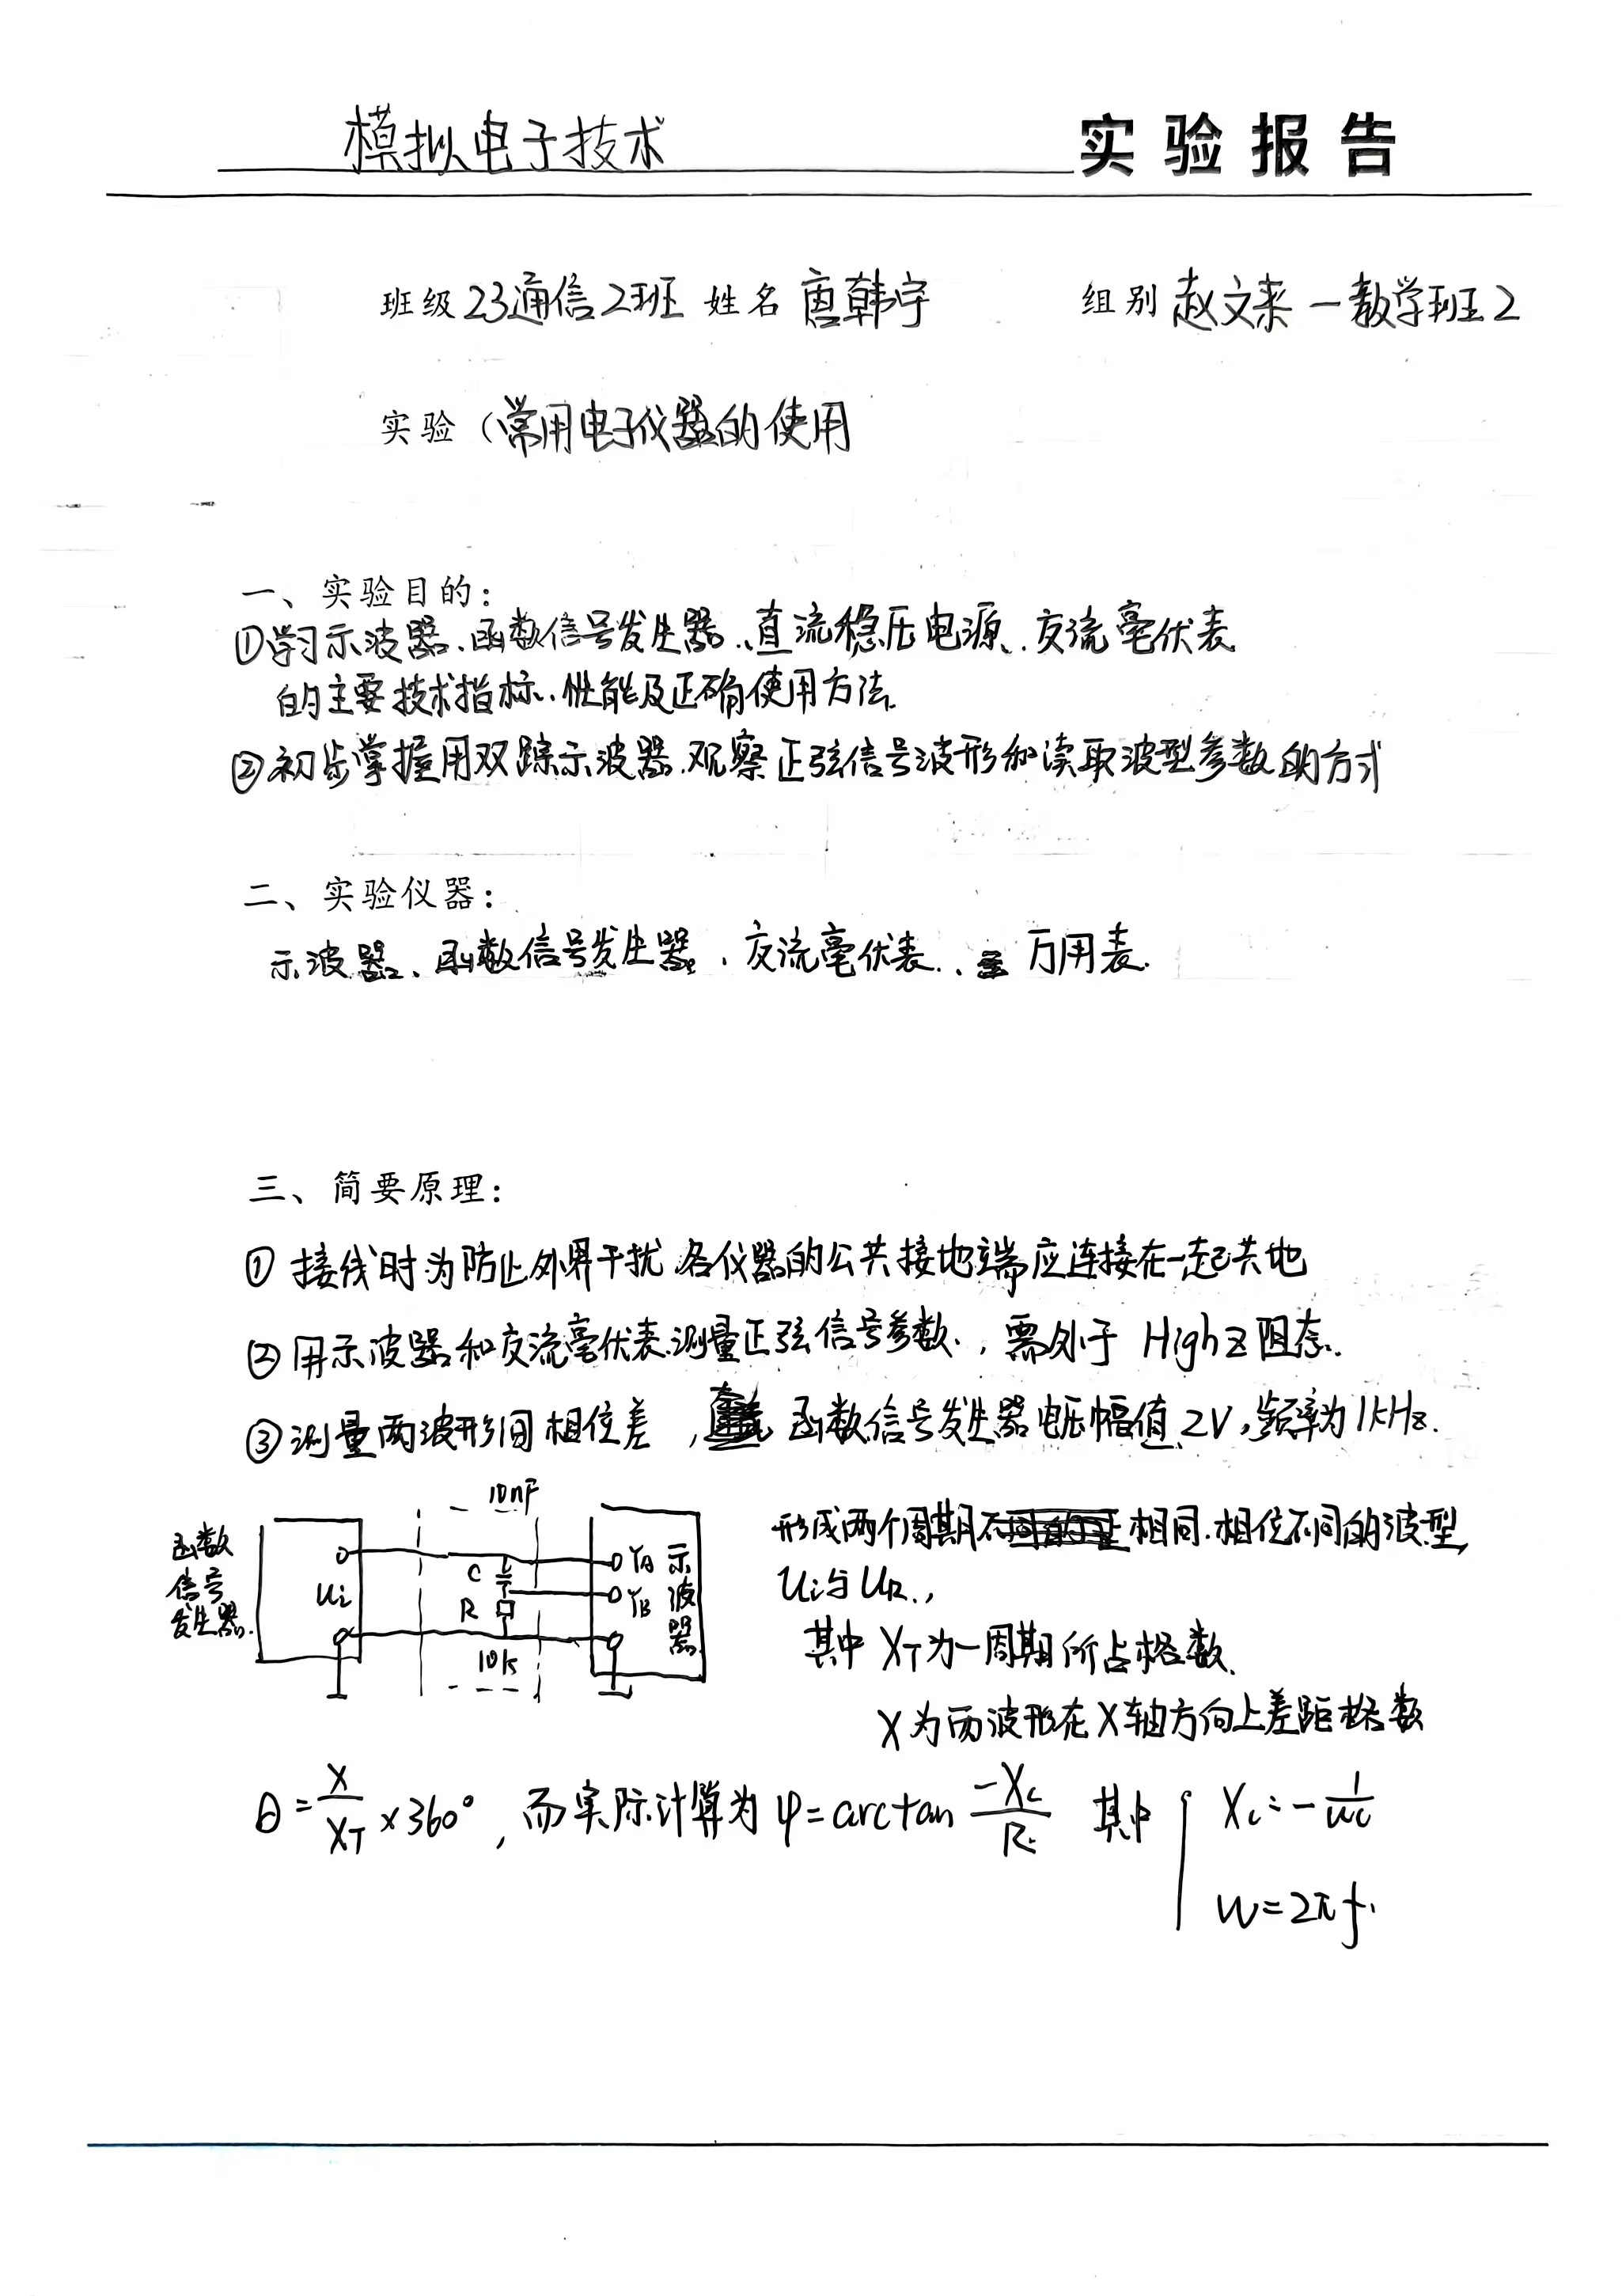 模拟电子技术 实验报告
班级 23通信2班 姓名 唐韩宇 组别 赵文来一教学班2
实验(常用电子仪器的使用
一、实验目的:
①学习示波器、函数信号发生器、直流稳压电源、交流毫伏表
的主要技术指标、性能及正确使用方法.
②初步掌握用双踪示波器观察正弦信号波形和读取波型参数的方式
二、实验仪器:
示波器、函数信号发生器、交流毫伏表、万用表.
三、简要原理:
① 接线时为防止外界干扰 各仪器的公共接地端应连接在一起共地
② 用示波器和交流毫伏表测量正弦信号参数,需处于 High Z 阻态.
③ 测量两波形间相位差, 函数信号发生器电压幅值2V,频率为1kHz.
形成两个周期相同.相位不同的波型,
Ui与UR,
其中 XT为一周期所占格数
X为两波形在X轴方向上差距格数
函数
信号
发生器
Ui
10nF
C
R
10k
YA
YB
示波器
θ=X/XT×360°, 而实际计算为 φ=arctan -Xc/R 其中 Xc=-1/wc
w=2πf